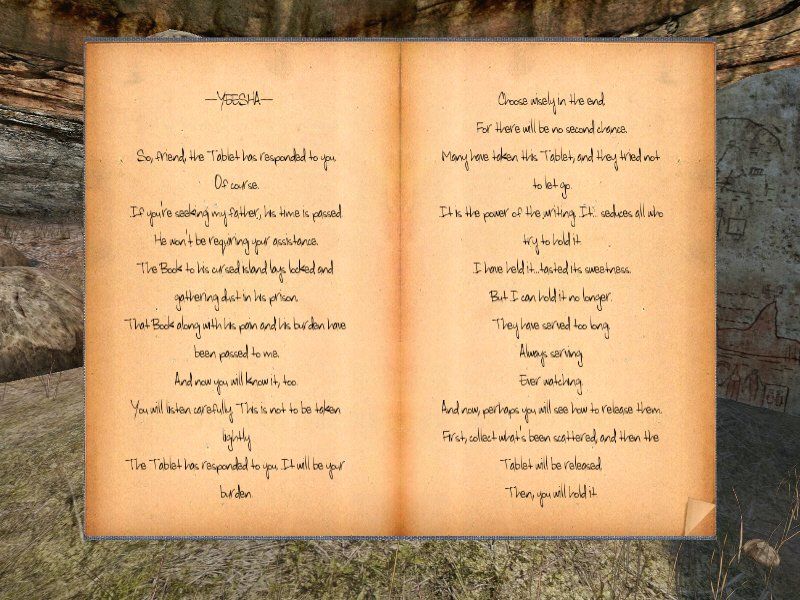 —YEESHA—
So, friend, the Tablet has responded to you.
Of course.
If you're seeking my father, his time is passed.
He won't be requiring your assistance.
The Book to his cursed island lays locked and
gathering dust in his prison.
That Book along with his pain and his burden have
been passed to me.
And now you will know it, too.
You will listen carefully. This is not to be taken
lightly.
The Tablet has responded to you. It will be your
burden.
Choose wisely in the end.
For there will be no second chance.
Many have taken this Tablet, and they tried not
to let go.
It is the power of the writing. It... seduces all who
try to hold it.
I have held it...tasted its sweetness.
But I can hold it no longer.
They have served too long.
Always serving.
Ever watching.
And now, perhaps you will see how to release them.
First, collect what's been scattered, and then the
Tablet will be released.
Then, you will hold it.